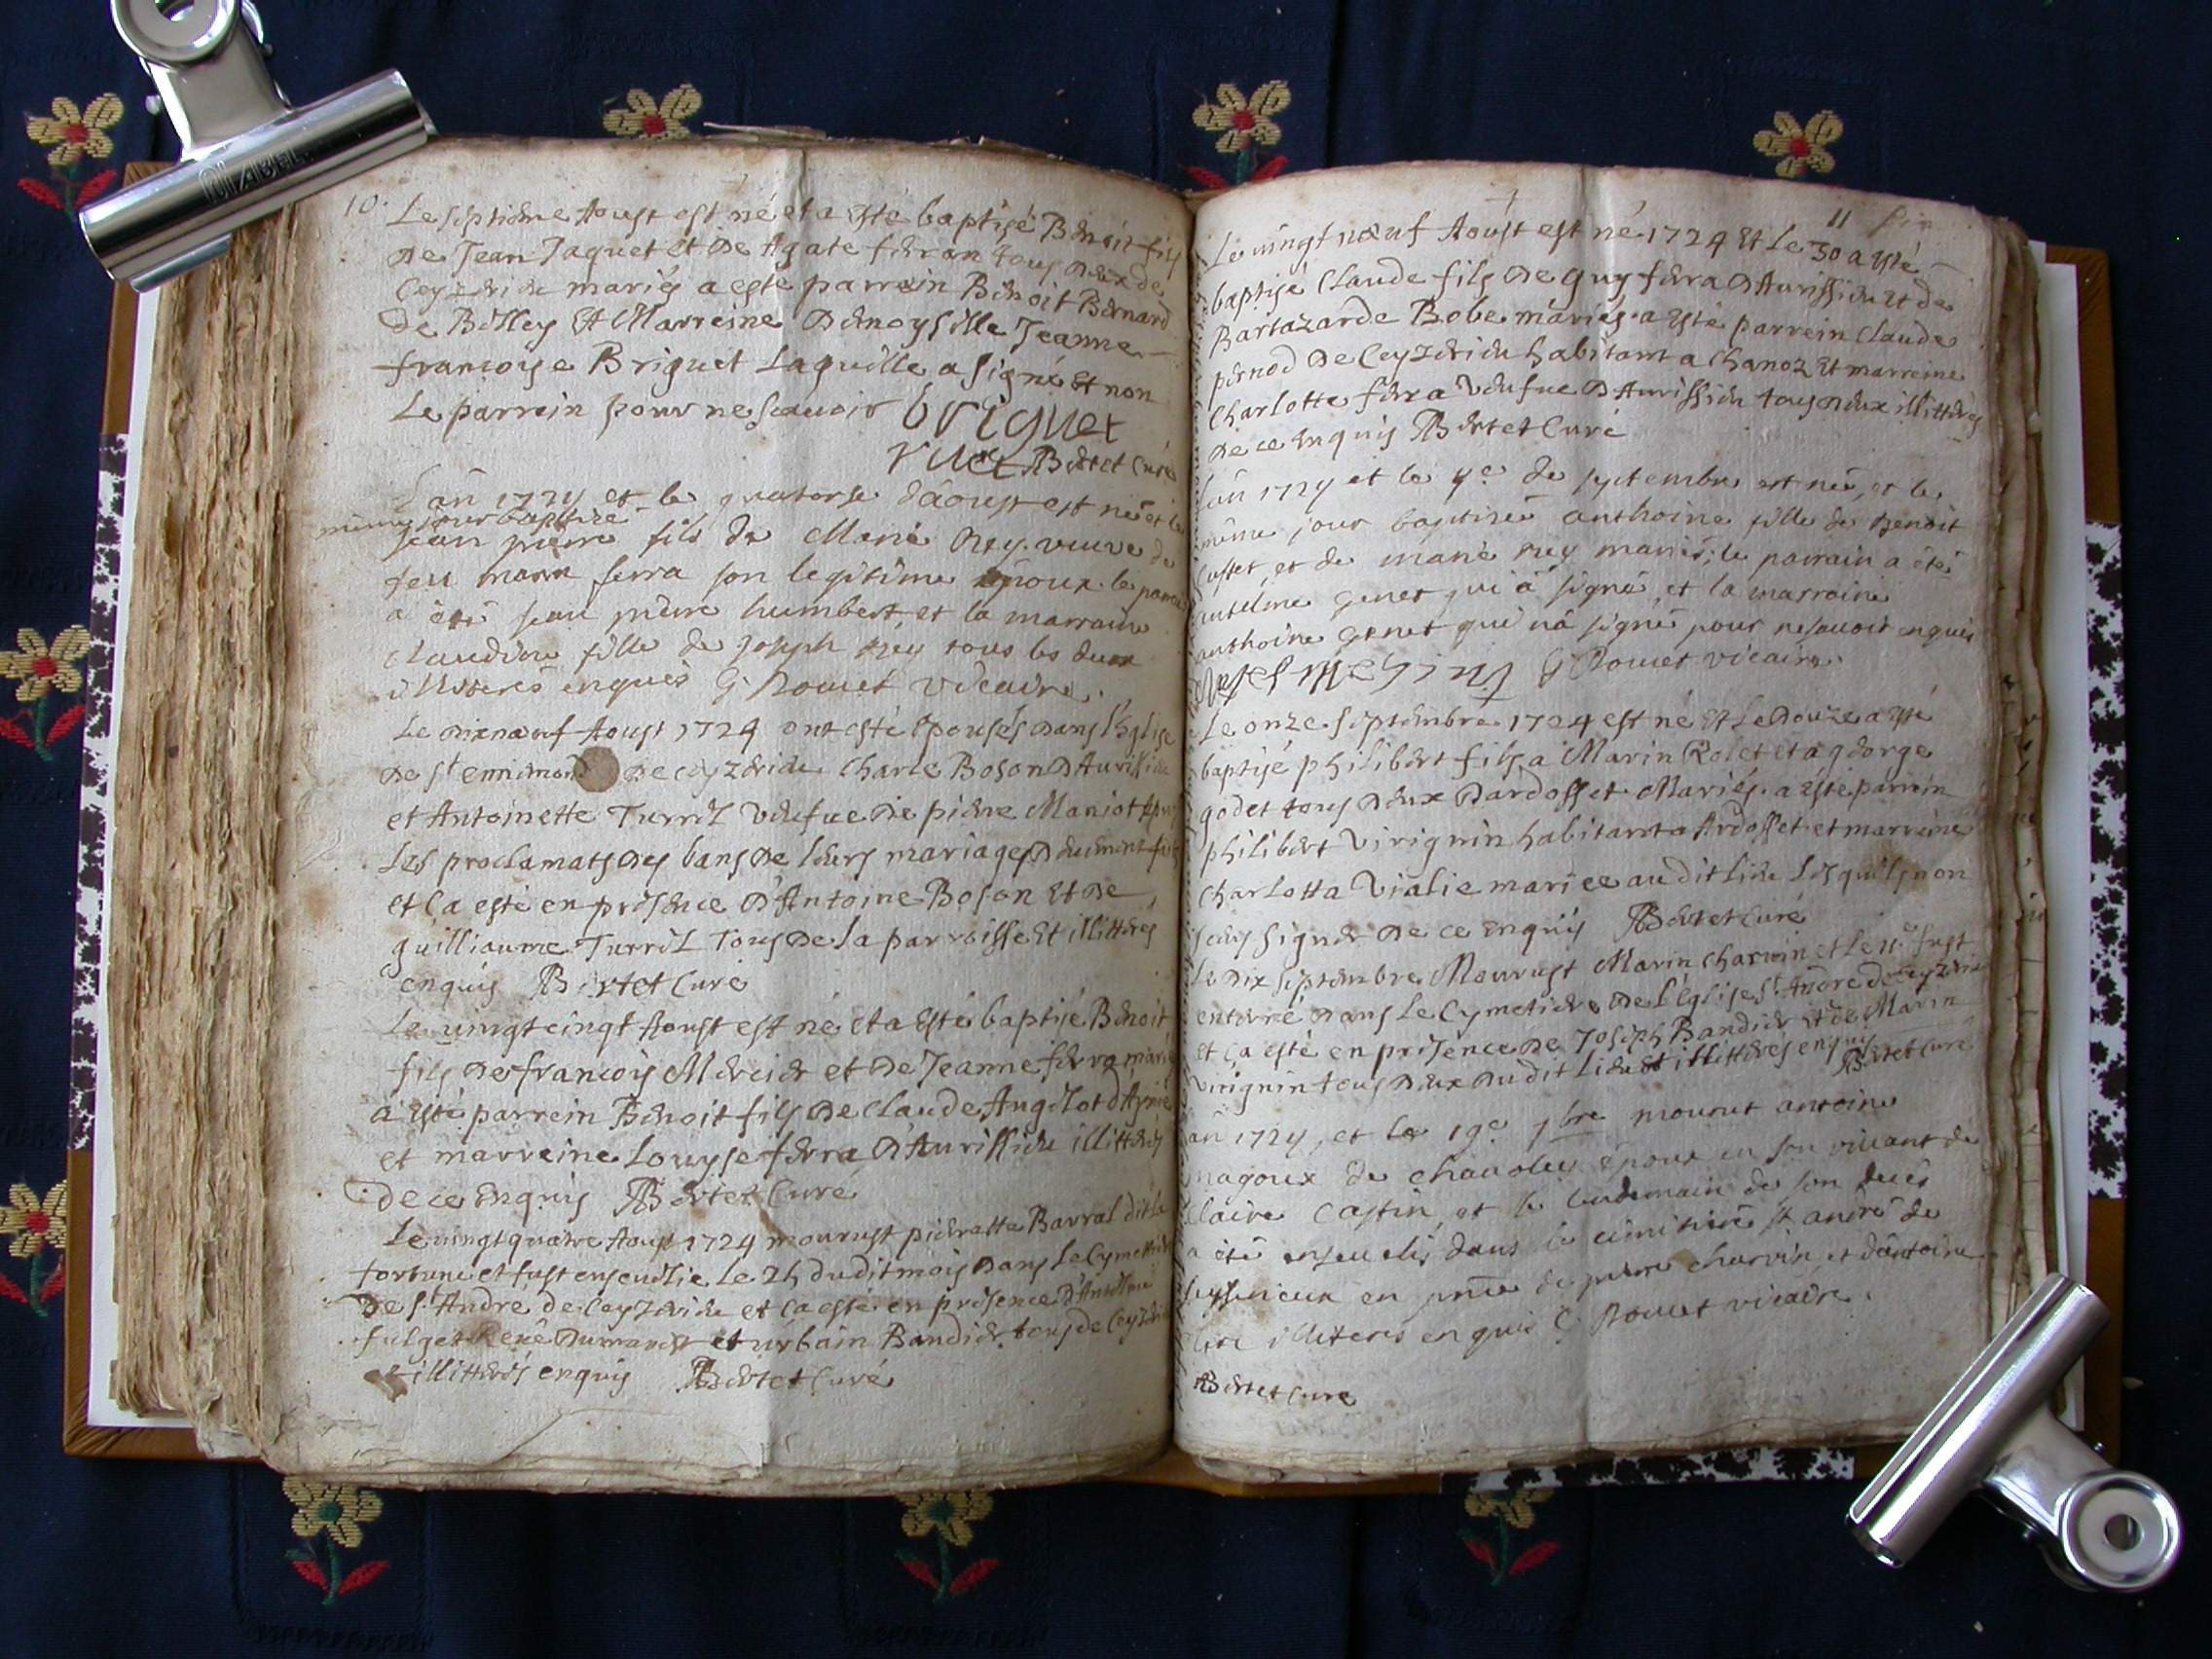 10.
Le septieme Aoust est né et a esté baptisé Benoit fils
de Jean Jaquet et de Agate ferran tous deux de
Ceyzerieu mariés a esté parrein Benoit Bernard
de Belley Et Marreine Demoyselle Jeanne
francoise Briguet Laquelle a signé Et non
Le parrein pour ne scavoir briguet
Bertet Curé
L'an 1724 et le quatorse d'aoust est né et le
meme jour baptisé
jean pierre fils de Rey veuve de
feu ferra son legitime epoux le
a été jean pierre humbert, et la marraine
claudine fille de joseph Rey tous les deux
illiterés enquis G Rouet vicaire.
Le dixnœuf Aoust 1724 ont esté Epousés dans l'Eglise
de St ennemond de ceyzerieu Charle Boson D'Aurissieu
et Antoinette Turrel veufue de pierre Maniot
Les proclamats des bans de leurs mariages duement
et ca esté en présence D'Antoine Boson Et De
guilliaume Turrel Tous de la parroisse Et illitterés
enquis Bertet Curé
Le vingtcingt Aoust est né et a Esté baptisé Benoit
fils de francois Mercier et de Jeanne ferra mariés
a esté parrein Benoit fils de claude Angelot
et marreine Louyse ferra D'Aurissieu illitterés
de ce Enquis Bertet Curé
Le vingtquatre Aoust 1724 mourust pierrette Barral dit la
fortune et fust ensevelie Le 25 dudit mois dans Le Cymettiere
De St André de Ceyzerieu et ca esté en présence D'Antelme
fulget René et urbain Bandier tous de Ceyzerieu
illitterés enquis Bertet Curé
11
Le vingt nœuf Aoust est né 1724 Et Le 30 a esté
baptisé Claude fils de guy ferra D'Aurissieu Et de
Bartazarde Bobe mariés a esté parrein Claude
pernod de Ceyzerieu habitant a chanoz Et marreine
Charlotte ferra Veufue D'Aurissieu tous deux illitterés
de ce Enquis Bertet Curé
L'an 1724 et le 4e de septembre est née, et le
même jour baptisée anthoine fille de Benoit
Cusset et de marie rey mariés; le parrain a été
antelme genet qui a signé, et la marraine
anthoine genet qui n'a signé pour ne savoir enquis
G Rouet vicaire.
Le onze septembre 1724 est né Et Le Douze a esté
baptisé philibert fils a Marin Rolet et a george
godet tous deux Dardosset Mariés a esté parrein
philibert Virignin habitant a Ardosset et marreine
Charlotta Vialie mariee audit lieu Lesquels non
sceus signer de ce enquis Bertet Curé
Le dix septembre Mourust Marin charvin et Le 11e fust
enterré dans Le Cymetiere de L'Eglise St André de Ceyzerieu
et ca esté en présence de Joseph Bandier et de Marin
virignin tous deux dudit Lieu Et illitterés enquis
Bertet Curé
L'an 1724, et le 19e 7bre mourut antoine
magoux de epoux en son vivant de
claire Castin, et le lendemain de son decés
a été enseveli dans le cimitiere st andré de
en pnce de pierre charvin, et d'antoine
illiterés enquis G Rouet vicaire.
Bertet Curé